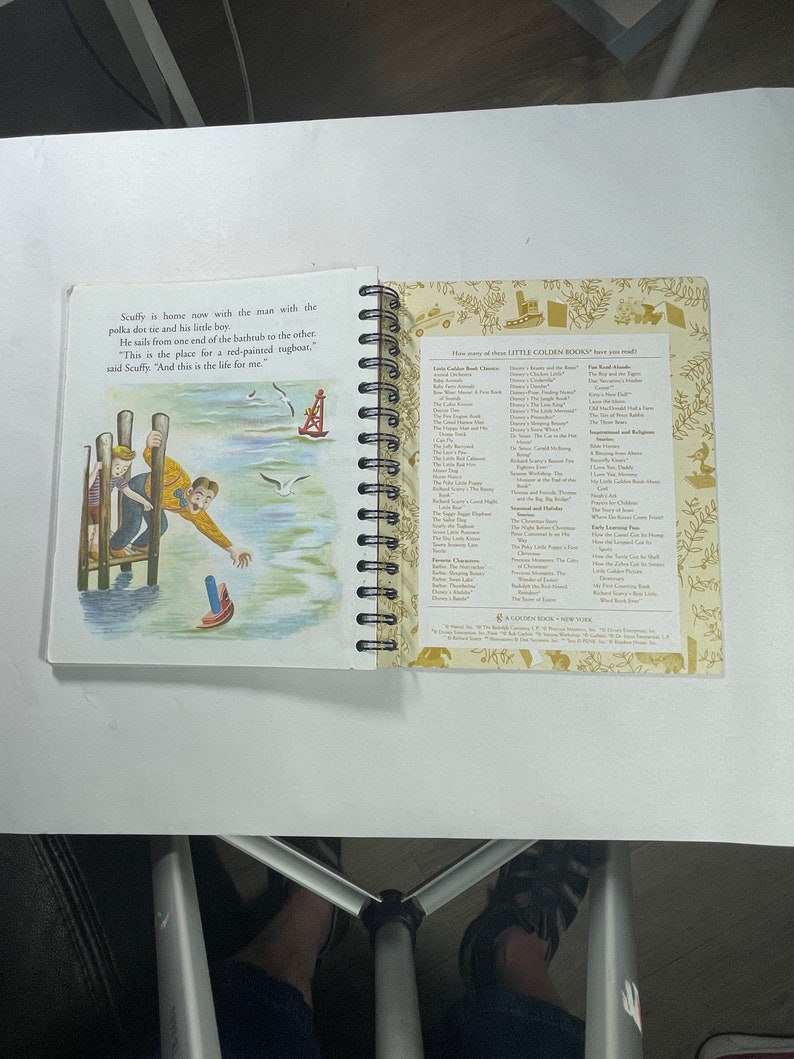 Scuffy is home now with the man with the
polka dot tie and his little boy.
He sails from one end of the bathtub to the other.
"This is the place for a red-painted tugboat,"
said Scuffy. "And this is the life for me."
How many of these LITTLE GOLDEN BOOKS® have you read?
Little Golden Book Classics:
Animal Orchestra
Baby Animals
Baby Farm Animals
Bow Wow! Meow! A First Book
of Sounds
The Color Kittens
Doctor Dan
The Fire Engine Book
The Good Humor Man
The Happy Man and His
Dump Truck
I Can Fly
The Jolly Barnyard
The Lion's Paw
The Little Red Caboose
The Little Red Hen
Mister Dog
Nurse Nancy
The Poky Little Puppy
Richard Scarry's The Bunny
Book
Richard Scarry's Good Night,
Little Bear
The Saggy Baggy Elephant
The Sailor Dog
Scuffy the Tugboat
Seven Little Postmen
The Shy Little Kitten
Tawny Scrawny Lion
Tootle
Favorite Characters:
Barbie: The Nutcracker
Barbie: Sleeping Beauty
Barbie: Swan Lake
Barbie: Thumbelina
Disney's Aladdin*
Disney's Bambi*
Disney's Beauty and the Beast*
Disney's Chicken Little*
Disney's Cinderella*
Disney's Dumbo*
Disney•Pixar: Finding Nemo*
Disney's The Jungle Book*
Disney's The Lion King*
Disney's The Little Mermaid*
Disney's Pinocchio*
Disney's Sleeping Beauty*
Disney's Snow White*
Dr. Seuss: The Cat in the Hat
Movie*
Dr. Seuss: Gerald McBoing
Boing*
Richard Scarry's Busiest Fire
Fighters Ever!
Sesame Workshop: The
Monster at the End of this
Book*
Thomas and Friends: Thomas
and the Big, Big Bridge*
Seasonal and Holiday
Stories:
The Christmas Story
The Night Before Christmas
Peter Cottontail Is on His
Way
The Poky Little Puppy's First
Christmas
Precious Moments: The Gifts
of Christmas*
Precious Moments: The
Wonder of Easter*
Rudolph the Red-Nosed
Reindeer*
The Story of Easter
Fun Read-Alouds:
The Boy and the Tigers
Dan Yaccarino's Mother
Goose
Kitty's New Doll
Laura the Moon
Old MacDonald Had a Farm
The Tale of Peter Rabbit
The Three Bears
Inspirational and Religious
Stories:
Bible Heroes
A Blessing from Above
Butterfly Kisses*
I Love You, Daddy
I Love You, Mommy
My Little Golden Book About
God
Noah's Ark
Prayers for Children
The Story of Jesus
Where Do Kisses Come From?
Early Learning Fun:
How the Camel Got Its Hump
How the Leopard Got Its
Spots
How the Turtle Got Its Shell
How the Zebra Got Its Stripes
Little Golden Picture
Dictionary
My First Counting Book
Richard Scarry's Best Little
Word Book Ever!
A GOLDEN BOOK • NEW YORK